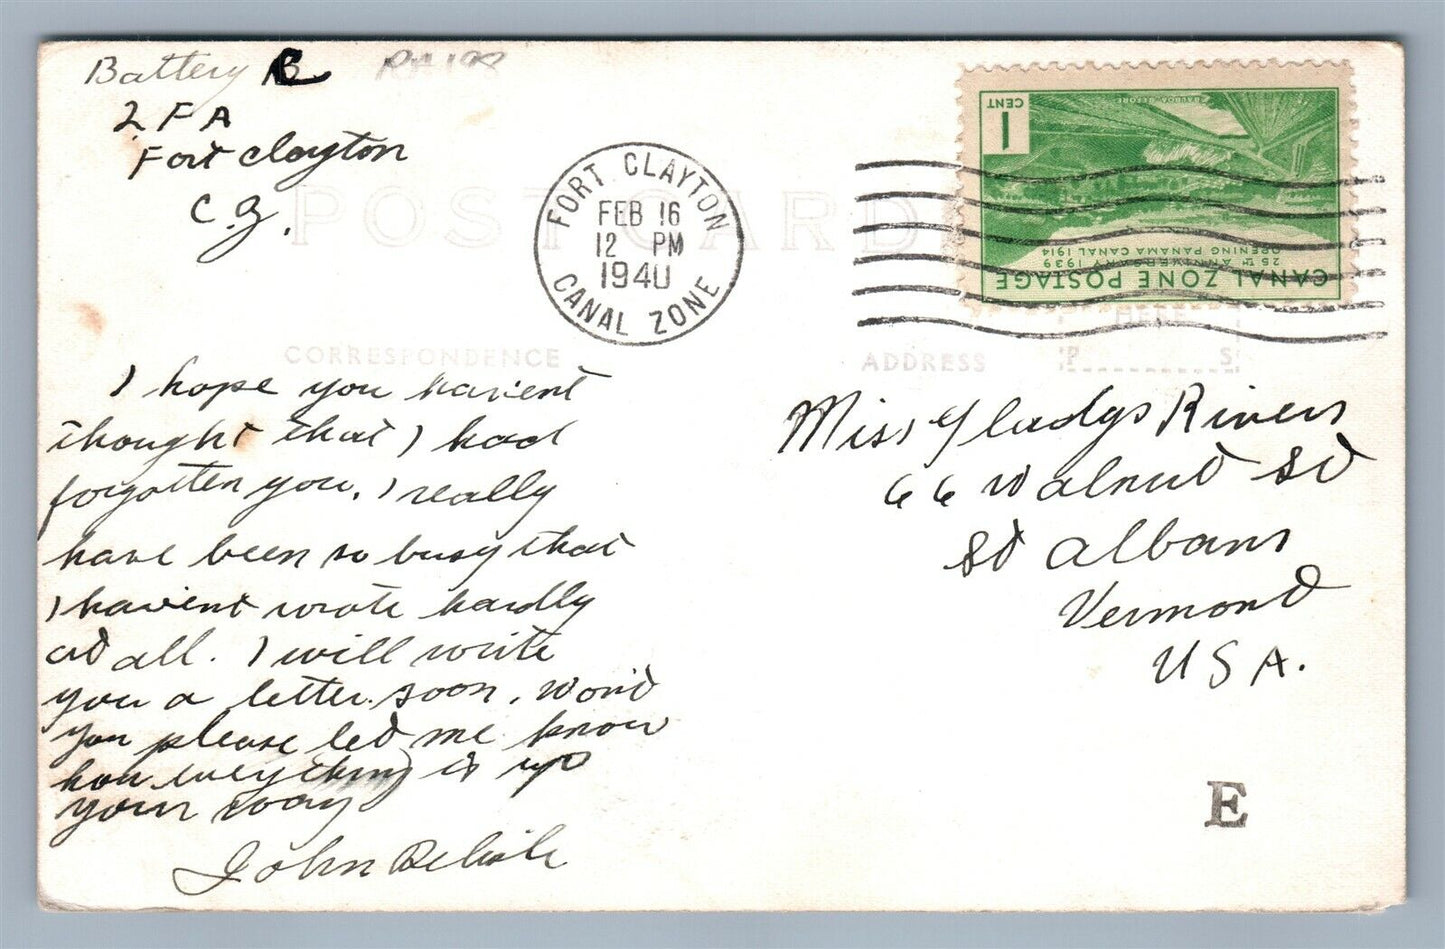 Battery B
2 F A
Fort Clayton
C. Z.
RA198
POST CARD
FORT CLAYTON
FEB 16
12 PM
1940
CANAL ZONE
1
CENT
GAMBOA-BEFORE
25TH ANNIVERSARY 1939
OPENING PANAMA CANAL 1914
CANAL ZONE POSTAGE
HERE
P S
CORRESPONDENCE
ADDRESS
I hope you haven't
thought that I had
forgotten you. I really
have been so busy that
I haven't wrote hardly
at all. I will write
you a letter soon. Won't
you please let me know
how everything is up
your way
John Belisle
Miss Gladys Rivers
66 Walnut St
St Albans
Vermont
U S A.
E